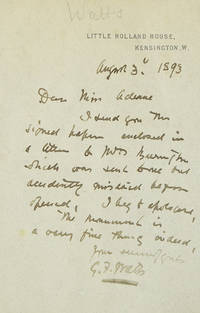 Watts
LITTLE HOLLAND HOUSE,
KENSINGTON, W.
August 3d 1893
Dear Miss Adeane
I send you the
signed paper enclosed in
a letter to Mrs
which was sent to me but
accidently mislaid before
opened, I beg to apologise,
The Monument is
a very fine thing indeed,
Yours
G. F. Watts